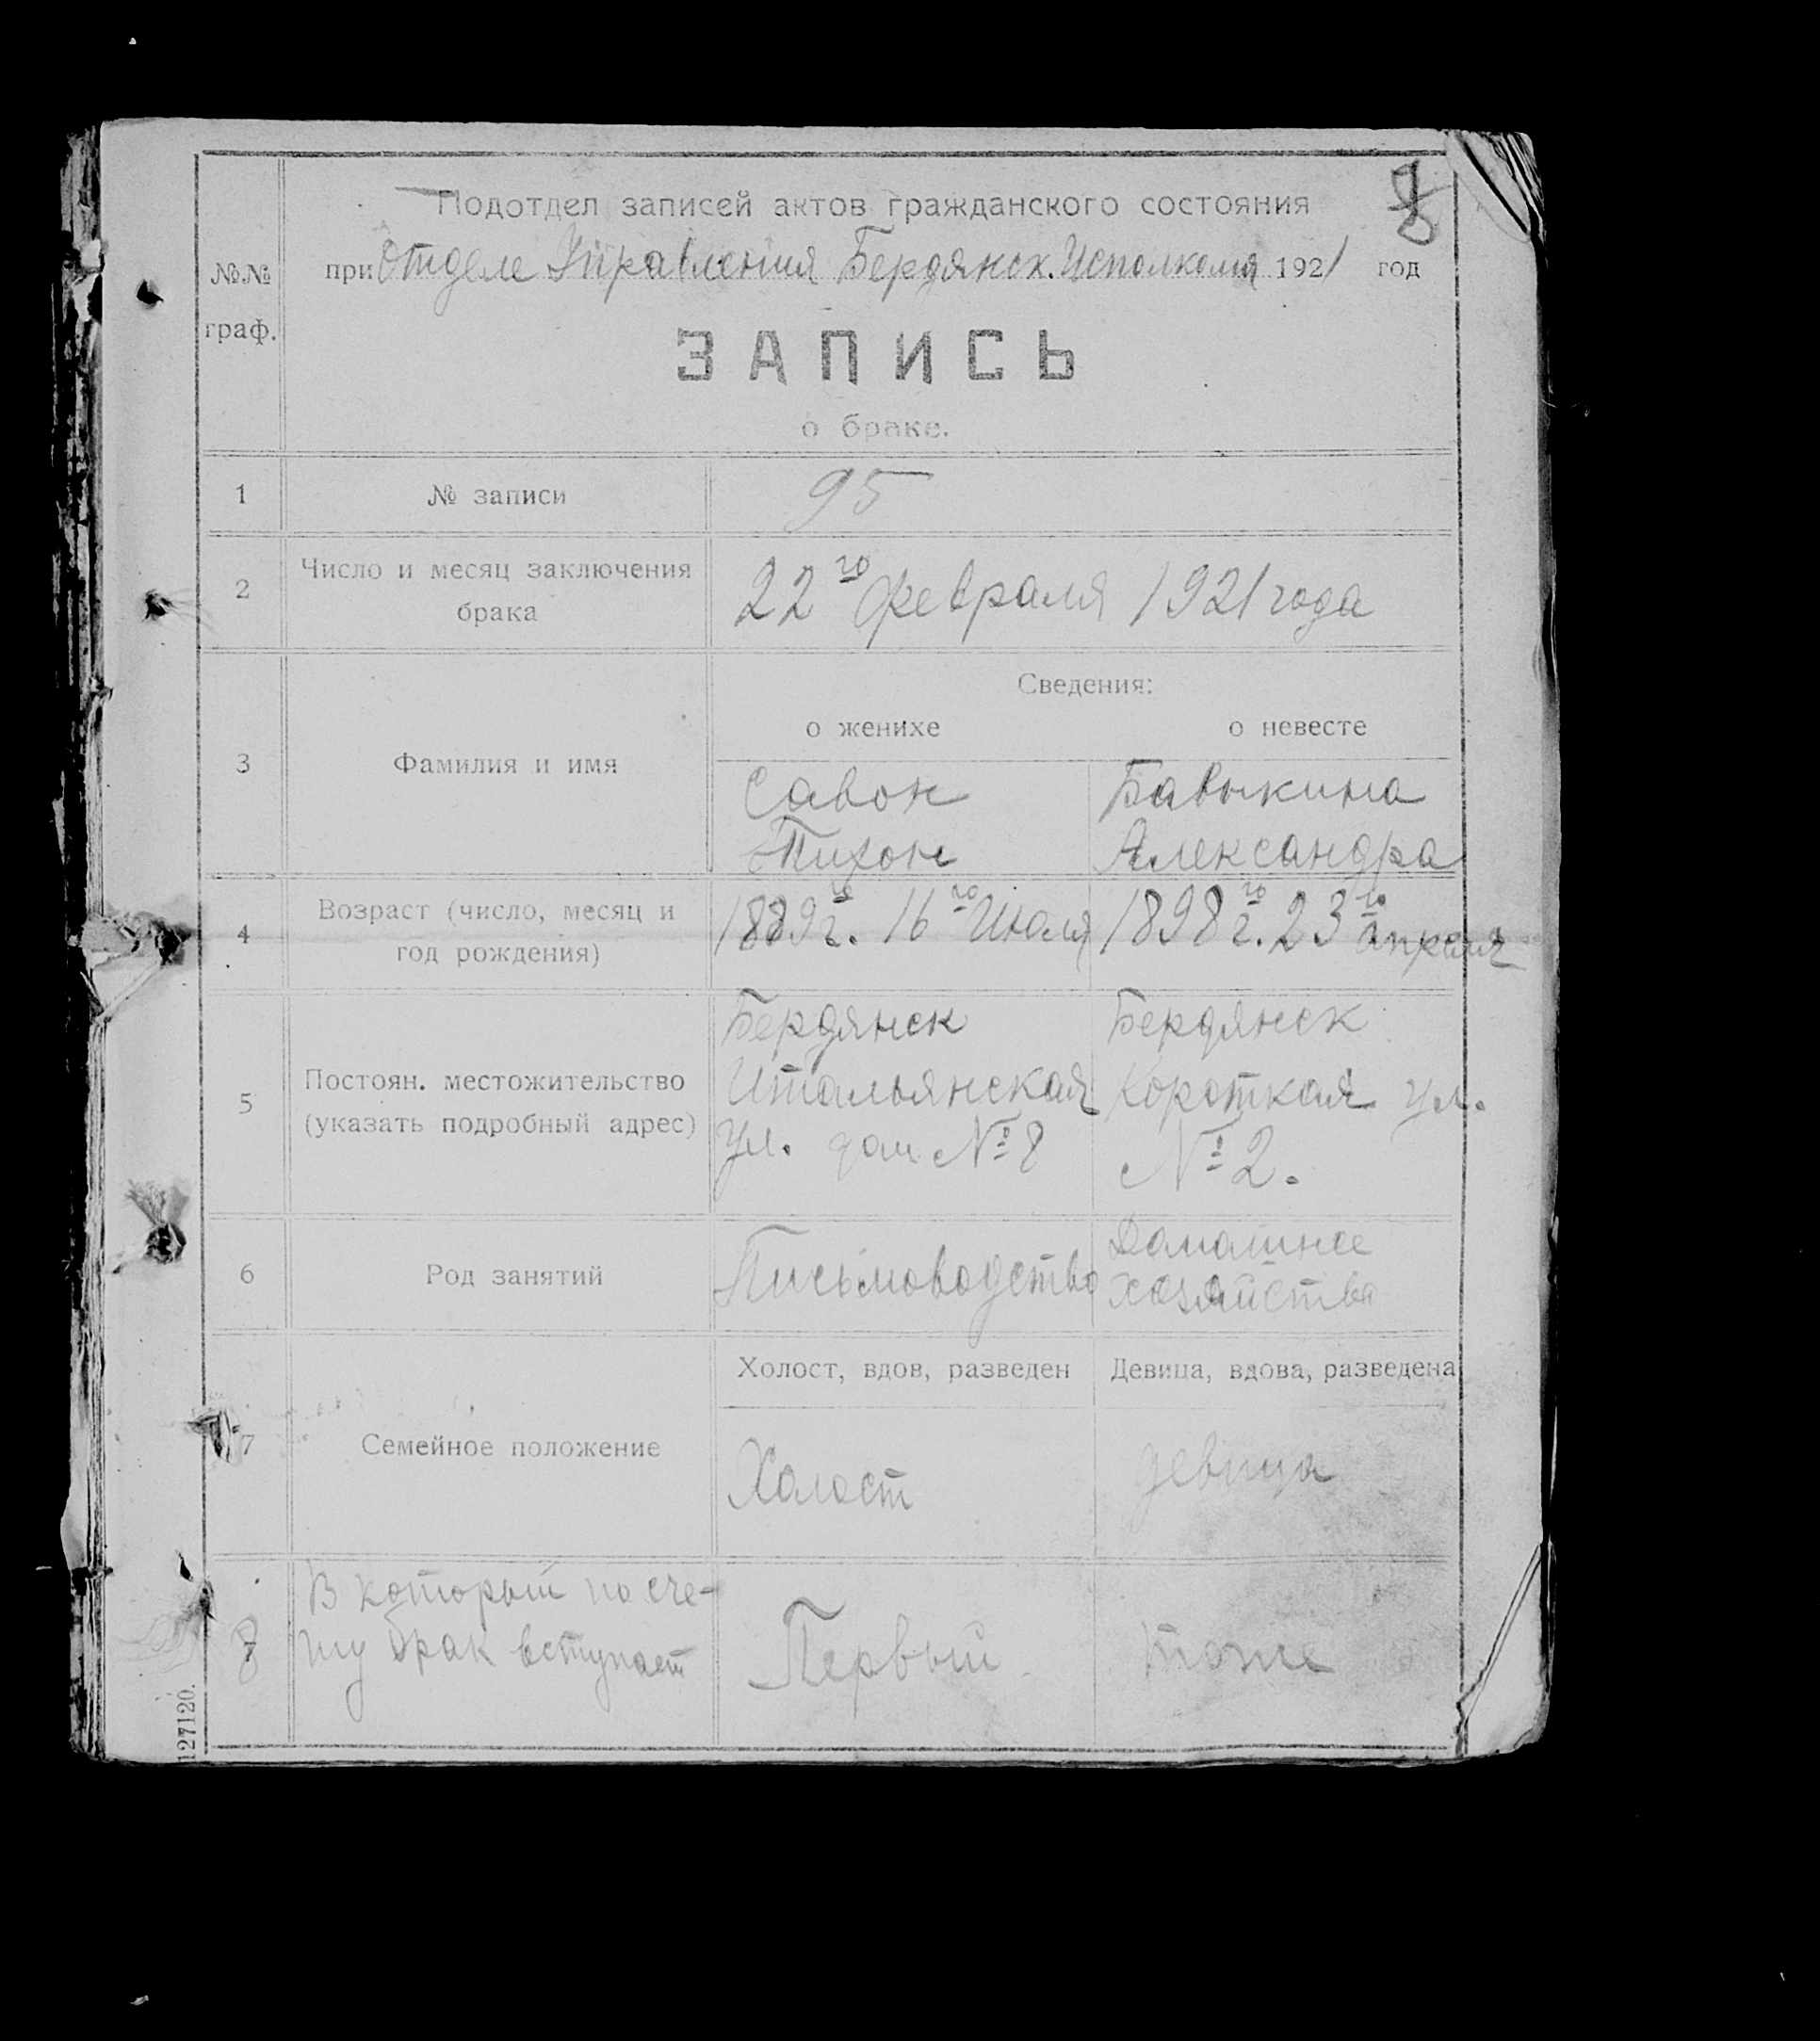 Подотдел записей актов гражданского состояния
8
при Отделе Управления Бердянск. Исполкома 1921 год
№№
граф.
ЗАПИСЬ
о браке.
1 № записи 95
2 Число и месяц заключения брака 22го февраля 1921 года
Сведения:
о женихе о невесте
3 Фамилия и имя
Савон Бавыкина
Тихон Александра
4 Возраст (число, месяц и год рождения)
1889го г. 16го Июля 1898го г. 23го апреля
5 Постоян. местожительство
(указать подробный адрес)
Бердянск
Итальянская
ул. дом №8
Бердянск
Короткая ул.
№2.
6 Род занятий
Письмоводство
Домашнее
хозяйство
Холост, вдов, разведен Девица, вдова, разведена
7 Семейное положение
Холост девица
8 В который по сче-
ту брак вступает
Первый тоже
127120.